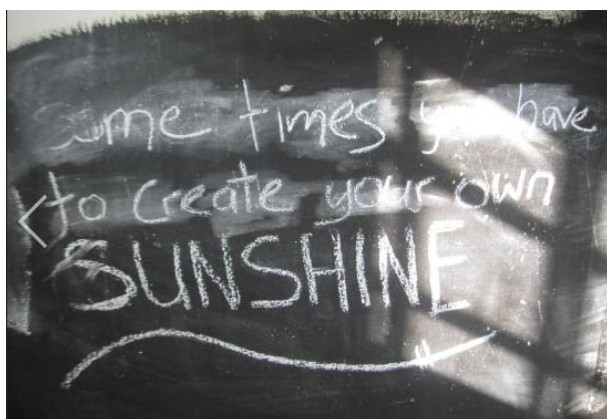 Some times you have
to create your own
SUNSHINE